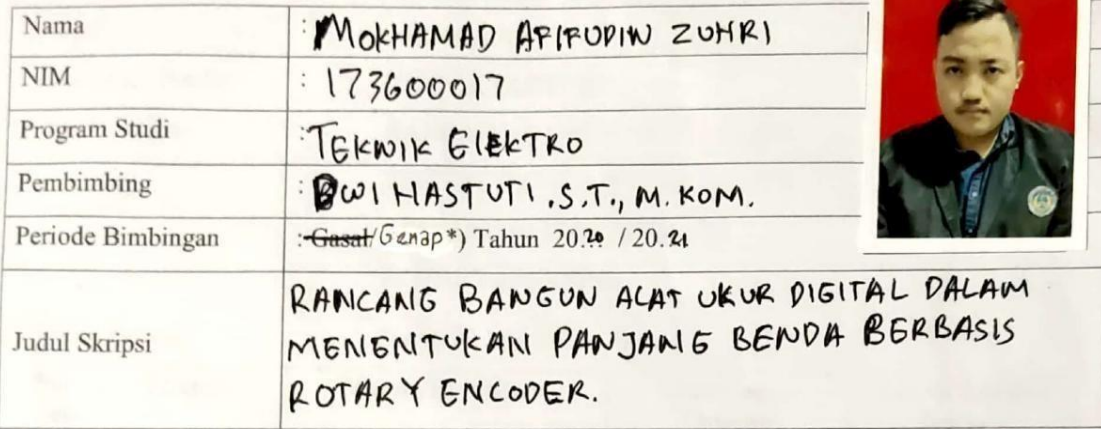 Nama : MOKHAMAD AFIFUDIN ZUHRI
NIM : 173600017
Program Studi : TEKNIK ElEKTRO
Pembimbing : DWI HASTUTI .S.T., M. KOM.
Periode Bimbingan : Gasal/Genap*) Tahun 20.20 / 20.21
Judul Skripsi
RANCANG BANGUN ALAT UKUR DIGITAL DALAM
MENENTUKAN PANJANG BENDA BERBASIS
ROTARY ENCODER.